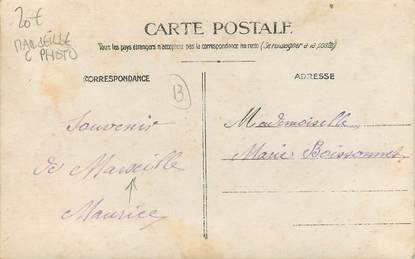 20€
MARSEILLE
C PHOTO
CARTE POSTALE
Tous les pays étrangers n'acceptent pas la correspondance au recto (Se renseigner à la poste)
CORRESPONDANCE
13
ADRESSE
Souvenir
de Marseille
Maurice
Mademoiselle
Marie Boissonnet